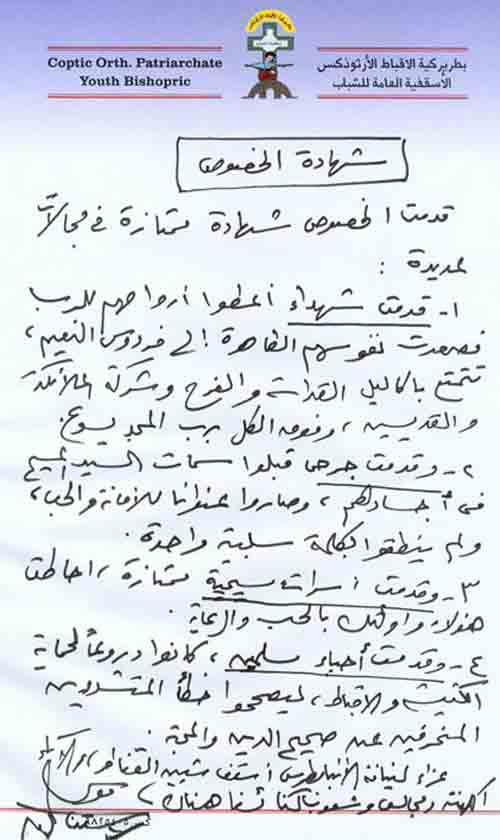 Coptic Orth. Patriarchate
Youth Bishopric
بطريركية الاقباط الأرثوذكس
الأسقفية العامة للشباب
شهادة الخصوص
قدمت الخصوص شهادة ممتازة فى مجالات
عديدة :
١- قدمت شهداء أعطوا أرواحهم للرب
فصعدت نفوسهم الطاهرة إلى فردوس النعيم،
تتمتع بأكاليل القداسة والفرح وشركة الملائكة
والقديسين، وفوق الكل برب المجد يسوع.
٢- وقدمت جرحى قبلوا سمات السيد المسيح
فى أجسادهم، وصاروا عنوانا للأمانة والحب،
ولم ينطقوا بكلمة سلبية واحدة.
٣- وقدمت أسرات مسيحية ممتازة، احاطت
هؤلاء وأولئك بالحب والرعاية.
٤- وقدمت أحباء مسلمين، كانوا دروعاً لحماية
الكنيسة والاقباط، ليصححوا خطأ المتشددين
المنحرفين عن صحيح الدين والمحبة.
عزاء لنيافة الأنبا مرقس أسقف شبين القناطر، والآباء
الكهنة ومجالس وشعوب كنائسنا هناك،